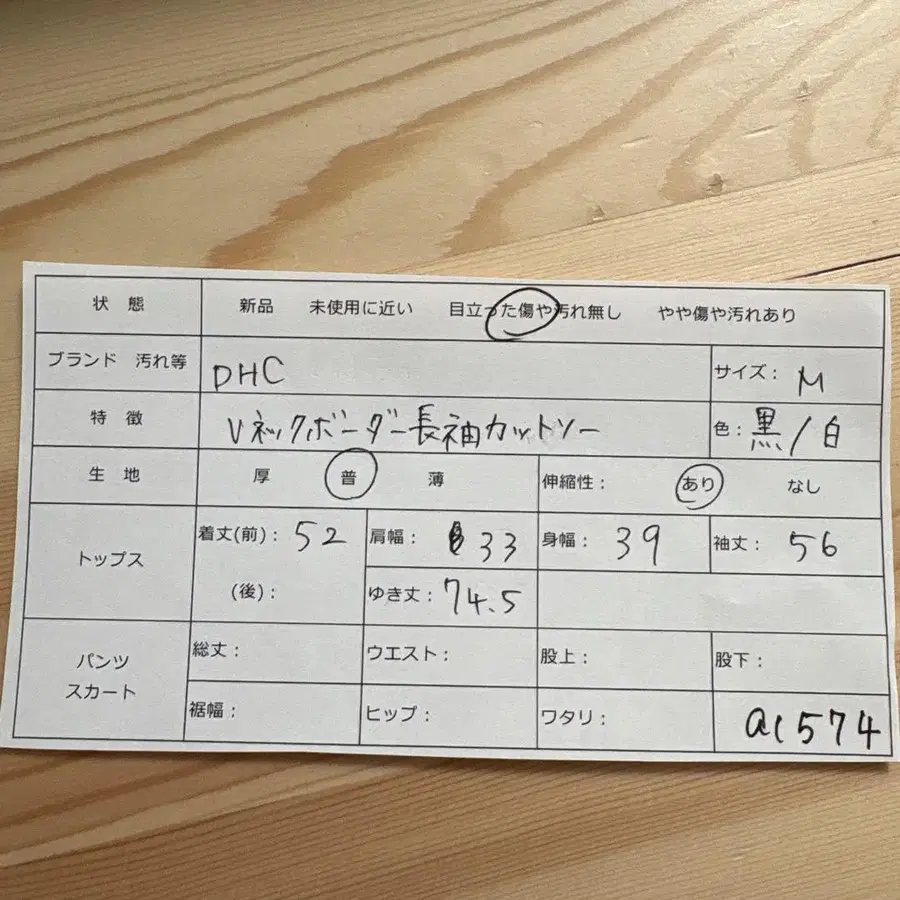 状 態 新品 未使用に近い 目立った傷や汚れ無し やや傷や汚れあり
ブランド 汚れ等 DHC サイズ: M
特 徴 Vネックボーダー長袖カットソー 色: 黒/白
生 地 厚 普 薄 伸縮性: あり なし
トップス 着丈(前): 52 肩幅: 33 身幅: 39 袖丈: 56
(後): ゆき丈: 74.5
パンツ 総丈: ウエスト: 股上: 股下:
スカート 裾幅: ヒップ: ワタリ: 574